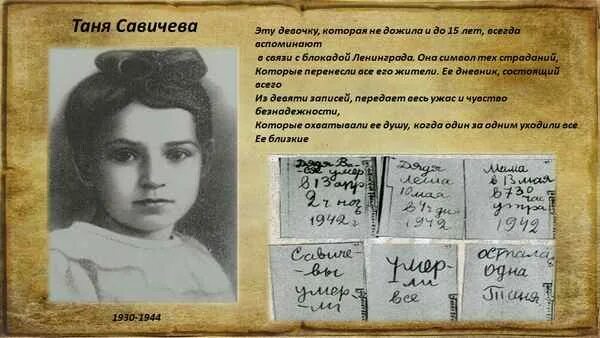 Таня Савичева
Эту девочку, которая не дожила и до 15 лет, всегда
вспоминают
в связи с блокадой Ленинграда. Она символ тех страданий,
Которые перенесли все его жители. Ее дневник, состоящий
всего
Из девяти записей, передает весь ужас и чувство
безнадежности,
Которые охватывали ее душу, когда один за одним уходили все
Ее близкие
Дядя Ва-
ся умер
в 13 апр
2 ч ноч
1942 г
Дядя
Леша
10 мая
в 4 ч дн
1942
Мама
в 13 мая
в 7 30 час
утра
1942
Савиче-
-вы
умер-
-ли
умер-
ли
все
осталась
одна
Таня
1930-1944